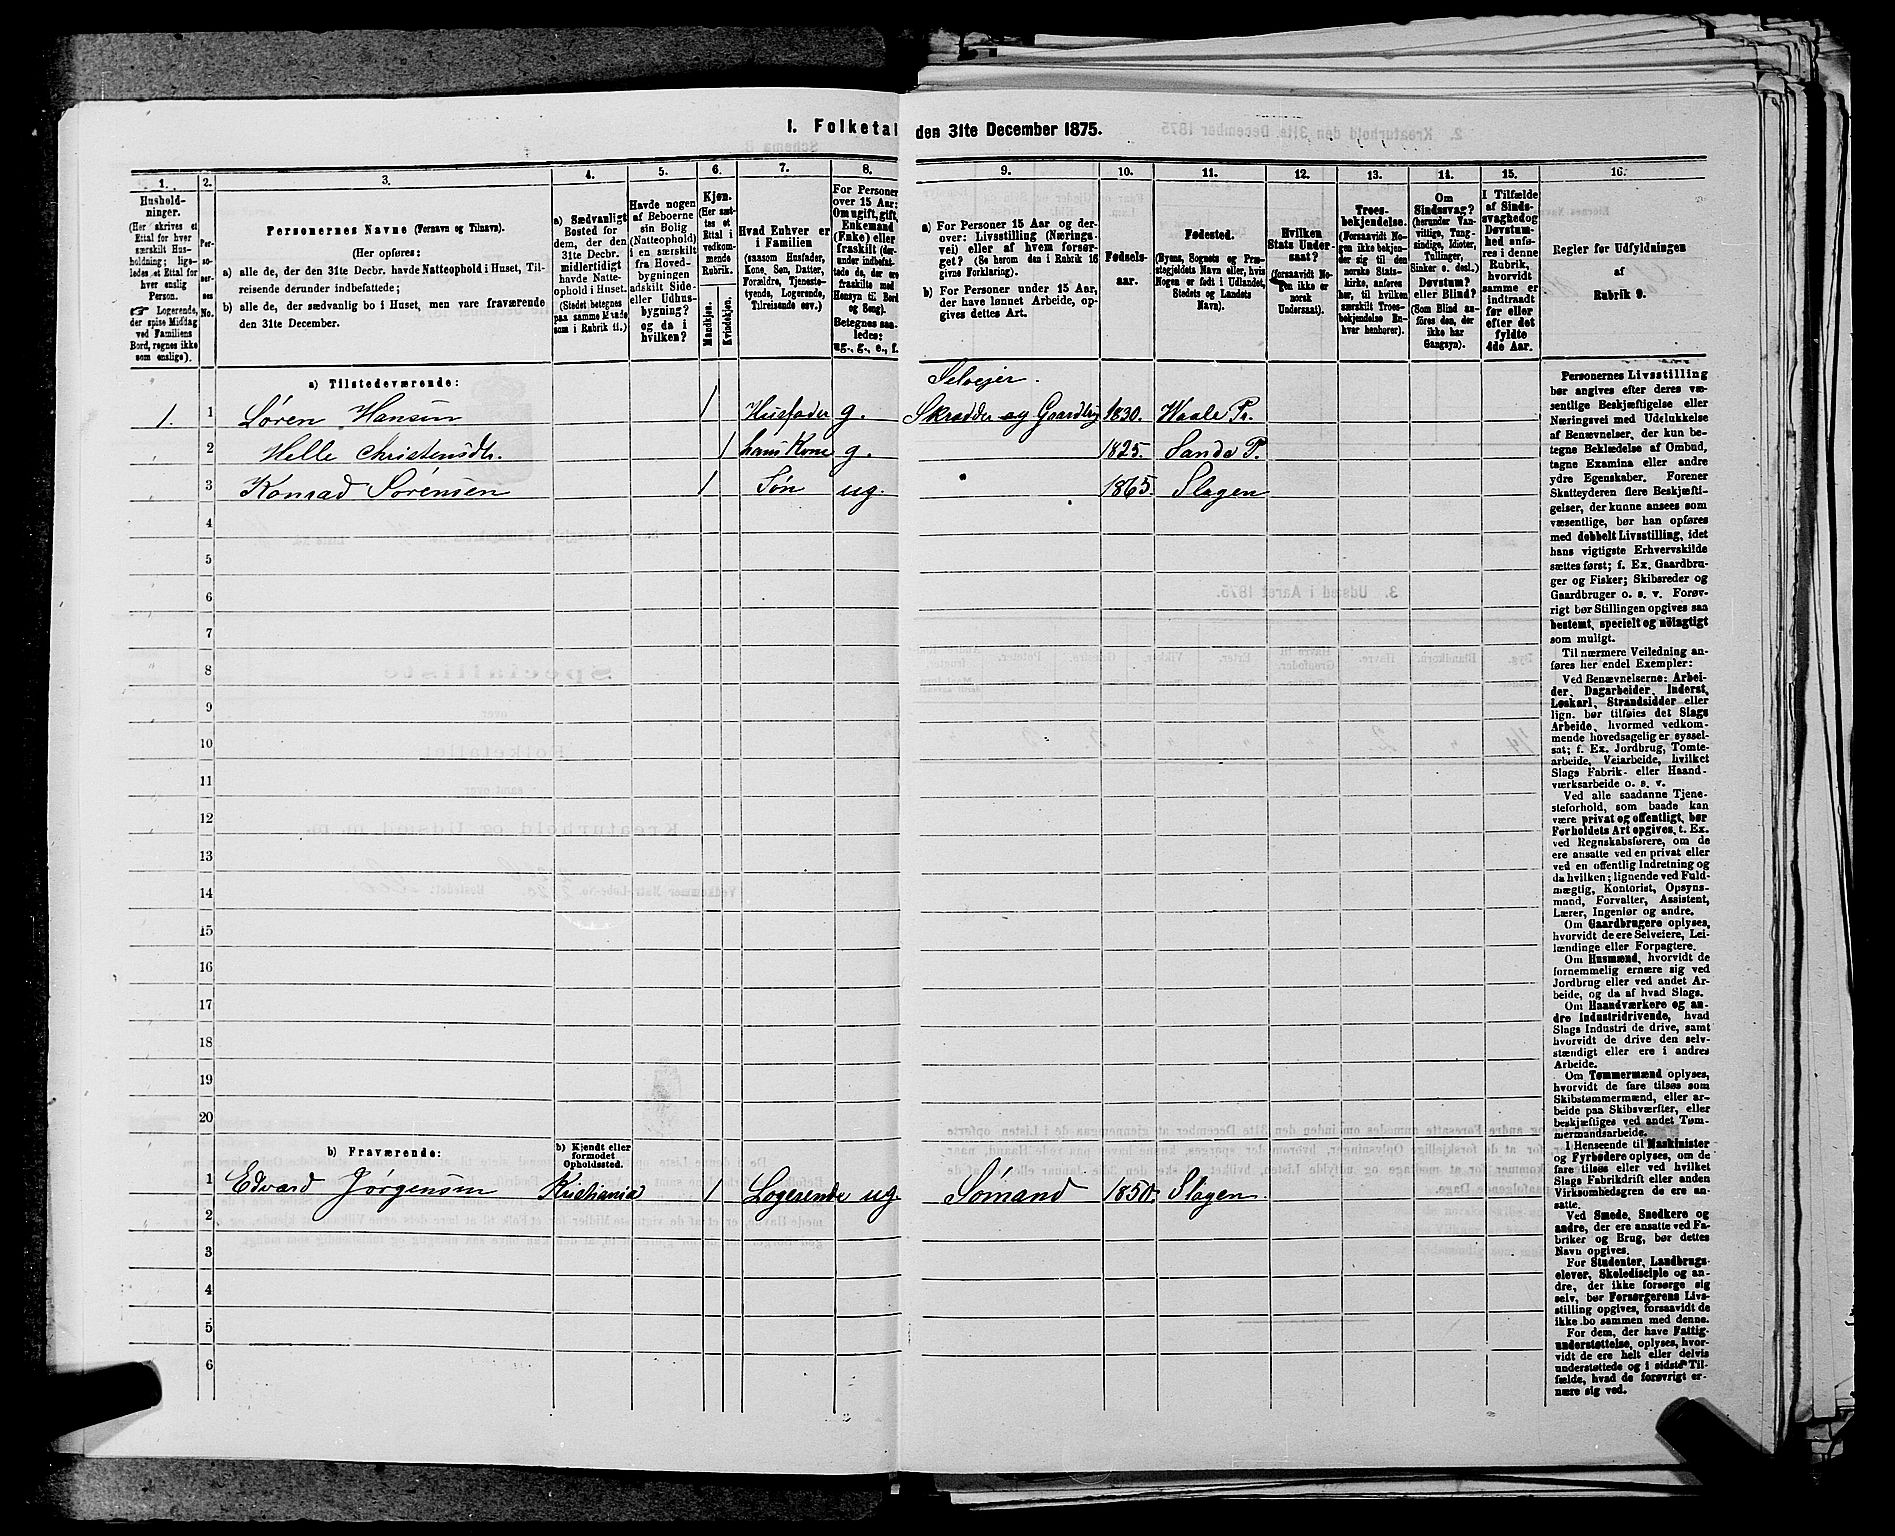 I. Folketal den 31te December 1875.
1. 2. 3. 4. 5. 6. 7. 8. 9. 10. 11. 12. 13. 14. 15. 16.
Husholdninger.
(Her skrives et
Ettal for hver
særskilt Hus-
holdning; lige-
ledes et Ettal for
hver enslig
Person.
☞ Logerende,
der spise Middag
ved Familiens
Bord, regnes ikke
som enslige).
Personernes No.
Personernes Navne (Fornavn og Tilnavn).
(Her opføres:
a) alle de, der den 31te Decbr. havde Natteophold i Huset, Til-
reisende derunder indbefattede;
b) alle de, der sædvanlig bo i Huset, men vare fraværende
den 31te December.
a) Sædvanligt
Bosted for
dem, der den
31te Decbr.
midlertidigt
havde Natte-
ophold i Huset.
(Stedet betegnes
paa samme Maade
som i Rubrik 11.)
Havde nogen
af Beboerne
sin Bolig
(Natteophold)
i en særskilt
fra Hoved-
bygningen
adskilt Side-
eller Udhus-
bygning?
og da i
hvilken?
Kjøn.
(Her sæt-
tes et
Ettal i
vedkom-
mende
Rubrik.
Mandkjøn.
Kvindekjøn.
Hvad Enhver er
i Familien
(saasom Husfader,
Kone, Søn, Datter,
Forældre, Tjeneste-
tyende, Logerende,
Tilreisende osv.)
For Personer
over 15 Aar:
Om ugift, gift,
Enkemand
(Enke) eller
fraskilt (der-
under indbefat-
tede de, der ere
fraskilte med
Hensyn til Bord
og Seng).
Betegnes saa-
ledes:
ug., g., e., f.
a) For Personer 15 Aar og der-
over: Livsstilling (Nærings-
vei) eller af hvem forsør-
get? (Se herom den i Rubrik 16
givne Forklaring).
b) For Personer under 15 Aar,
der have lønnet Arbeide, op-
gives dettes Art.
Fødsels-
aar.
Fødested.
(Byens, Sognets og Præ-
stegjeldets Navn eller, hvis
Nogen er født i Udlandet,
Stedets og Landets
Navn).
Hvilken
Stats Under-
saat?
(forsaavidt No-
gen ikke er
norsk
Undersaat).
Troes-
bekjendelse.
(Forsaavidt No-
gen ikke bekjen-
der sig til den
norske Stats-
kirke, anføres
her, til hvilken
særskilt Troes-
bekjendelse En-
hver henhører).
Om
Sindssvag?
(herunder Van-
vittige, Tung-
sindige, Idioter,
Tullinger,
Sinker o. desl.)
Døvstum?
eller Blind?
(Som Blind an-
føres den, der
ikke har
Gangsyn).
I Tilfælde
af Sinds-
svaghed og
Døvstum-
hed anfø-
res i denne
Rubrik,
hvorvidt
samme er
indtraadt
før eller
efter det
fyldte
4de Aar.
Regler for Udfyldningen
af
Rubrik 9.
a) Tilstedeværende:
Selveier.
1. 1 Søren Hansen 1 Husfader g. Skrædder og Gaardbr 1830. Waale Pr.
2 Helle Christensdtr. 1 hans Kone g. 1825. Sande P.
3 Konrad Sørensen 1 Søn ug. 1865. Slagen
4
5
6
7
8
9
10
11
12
13
14
15
16
17
18
19
20
b) Fraværende:
b) Kjendt eller
formodet
Opholdssted.
1 Edvard Jørgensen Kristiania 1 Logerende ug. Sømand 1850. Slagen.
2
3
4
5
6
Personernes Livsstilling
bør angives efter deres væ-
sentlige Beskjæftigelse eller
Næringsvei med Udelukkelse
af Benævnelser, der kun be-
tegne Beklædelse af Ombud,
tagne Examina eller andre
ydre Egenskaber. Forener
Skatteyderen flere Beskjæfti-
gelser, der kunne ansees som
væsentlige, bør han opføres
med dobbelt Livsstilling, idet
hans vigtigste Erhvervskilde
sættes først; f. Ex. Gaardbru-
ger og Fisker; Skibsreder og
Gaardbruger o. s. v. Forøv-
rigt bør Stillingen opgives saa
bestemt, specielt og nöiagtigt
som muligt.
Til nærmere Veiledning an-
føres her endel Exempler:
Ved Benævnelserne: Arbei-
der, Dagarbeider, Inderst,
Løskarl, Strandsidder eller
lign. bør tilføies det Slags
Arbeide, hvormed vedkom-
mende hovedsagelig er syssel-
sat; f. Ex. Jordbrug, Tomte-
arbeide, Veiarbeide, hvilket
Slags Fabrik- eller Haand-
værksarbeide o. s. v.
Ved alle saadanne Tjene-
steforhold, som baade kan
være privat og offentligt, bør
Forholdets Art opgives, t. Ex.
ved Regnskabsførere, om de
ere ansatte ved en privat eller
ved en offentlig Indretning og
da hvilken; lignende ved Fuld-
mægtig, Kontorist, Opsyns-
mand, Forvalter, Assistent,
Lærer, Ingeniør og andre.
Om Gaardbrugere oplyses,
hvorvidt de ere Selveiere, Lei-
lændinge eller Forpagtere.
Om Husmænd, hvorvidt de
fornemmelig ernære sig ved
Jordbrug eller ved andet Ar-
beide, og da af hvad Slags.
Om Haandværkere og an-
dre Industridrivende, hvad
Slags Industri de drive, samt
hvorvidt de drive den selv-
stændigt eller ere i andres
Arbeide.
Om Tømmermænd oplyses,
hvorvidt de fare tilsøs som
Skibstømmermænd, eller ar-
beide paa Skibsværfter, eller
beskjæftiges ved andet Tøm-
mermandsarbeide.
I Henseende til Maskinister
og Fyrbødere oplyses, om de
fare tilsøs eller ved hvilket
Slags Fabrikdrift eller anden
Virksomhedsgren de ere an-
satte.
Ved Smede, Snedkere og
andre, der ere ansatte ved Fa-
briker og Brug, bør dettes
Navn opgives.
For Studenter, Landbrugs-
elever, Skoledisciple og an-
dre, der ikke forsørge sig
selv, bør Forsørgerens Livs-
stilling opgives, forsaavidt de
ikke bo sammen med denne.
For dem, der have Fattig-
understøttelse, oplyses, hvor-
vidt de ere helt eller delvis
understøttede og i sidste Til-
fælde, hvad de forøvrigt er-
nære sig ved.